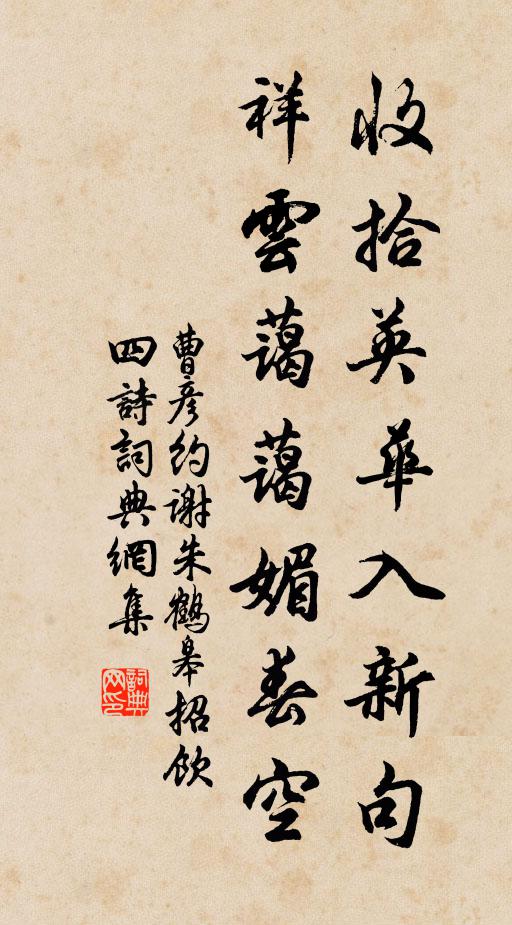 收拾英華入新句
祥雲藹藹媚春空
曹彦約謝朱鶴皋招飲
四詩詞典網集
詞典
网印